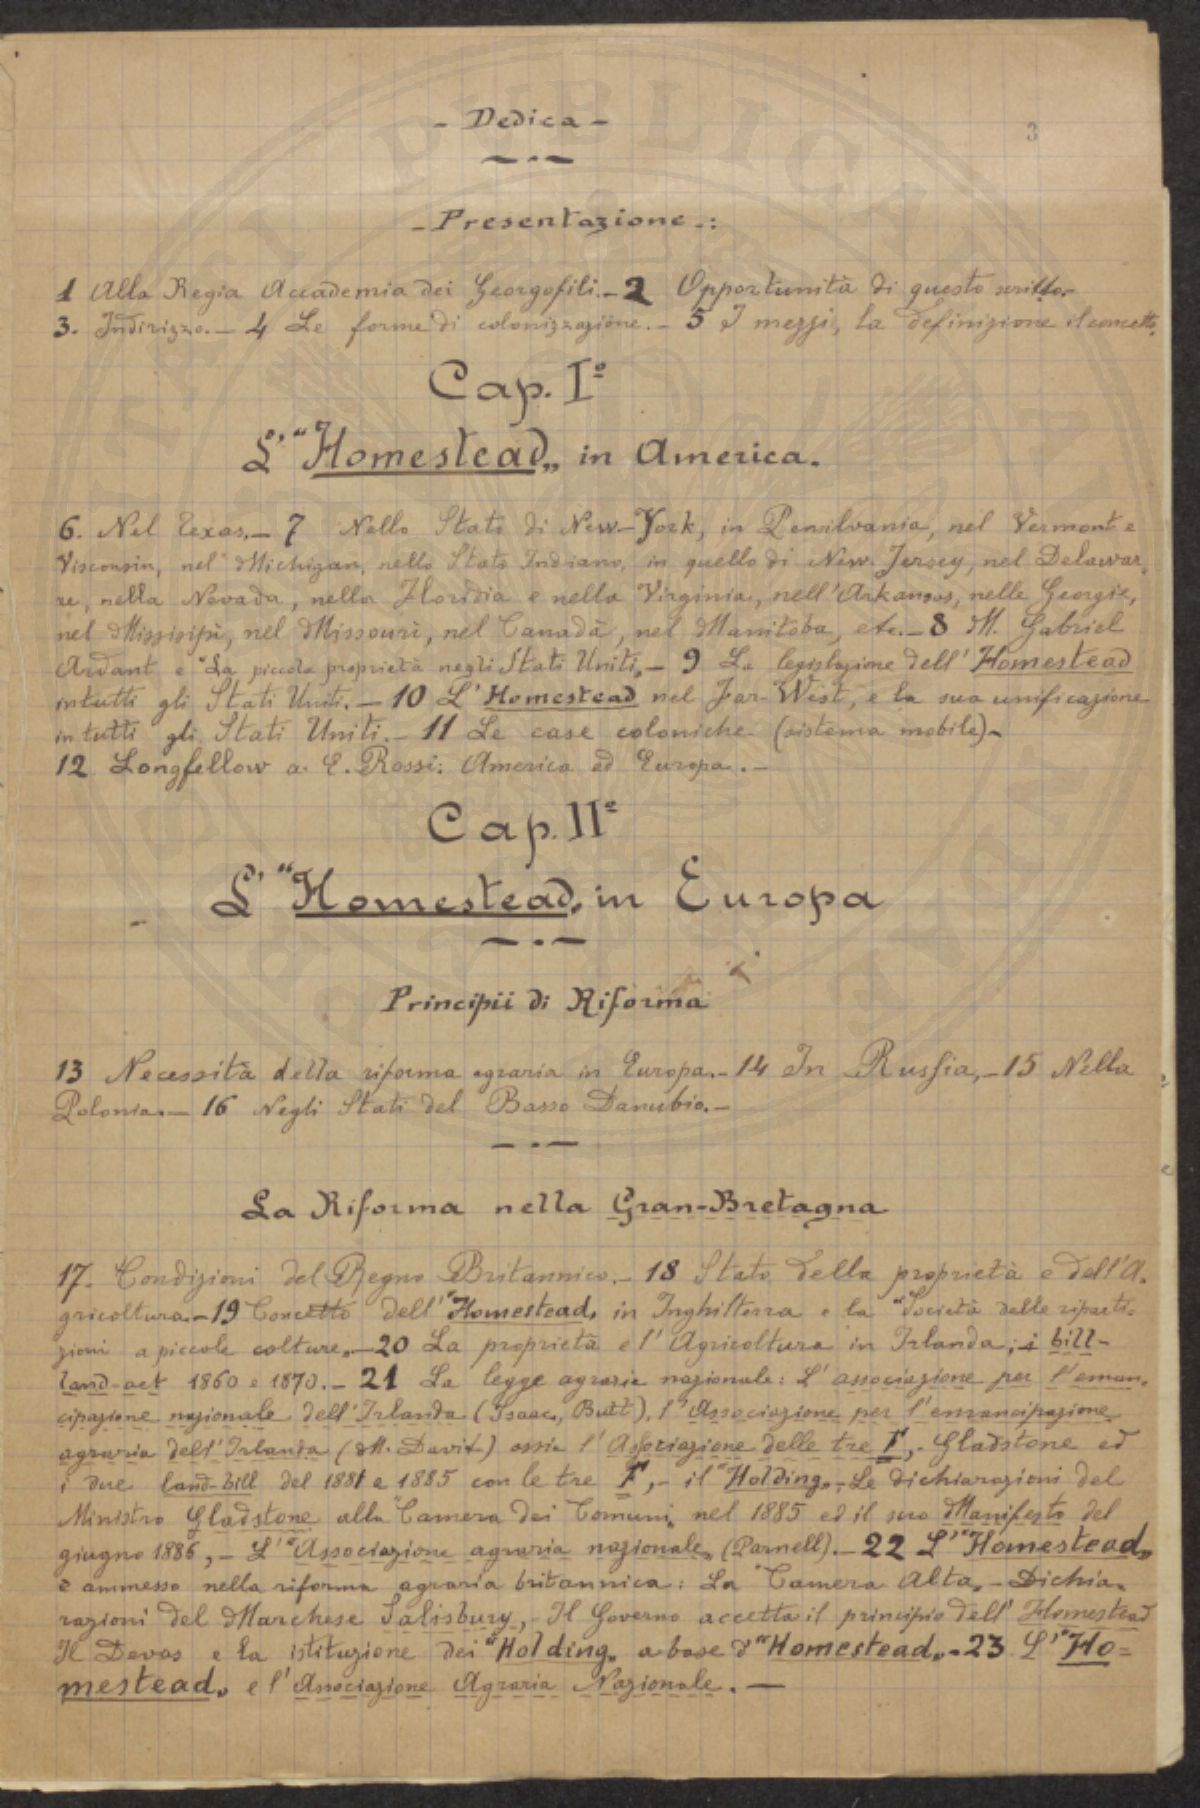 - Dedica -
3
- Presentazione -:
1 Alla Regia Accademia dei Georgofili. - 2 Opportunità di questo scritto. -
3. Indirizzo. - 4 Le forme di colonizzazione. - 5 I mezzi, la definizione il concetto.
Cap. Iº
L'"Homestead„ in America.
6. Nel Texas. - 7 Nello Stato di New-York, in Pensilvania, nel Vermont e
Visconsin, nel Michigan, nello Stato Indiano, in quello di New Jersey, nel Delawar-
re, nella Nevada, nella Floridia e nella Virginia, nell'Arkansas, nelle Georgie,
nel Missisipì, nel Missouri, nel Canadà, nel Manitoba, etc. - 8 M. Gabriel
Ardant e "La piccola proprietà negli Stati Uniti„ - 9 La legislazione dell'Homestead
in tutti gli Stati Uniti. - 10 L'Homestead nel Far-West, e la sua unificazione
in tutti gli Stati Uniti. - 11 Le case coloniche (sistema mobile) -
12 Longfellow a E. Rossi: America ed Europa. -
Cap. IIº
L'"Homestead„ in Europa
Principii di Riforma
13 Necessità della riforma agraria in Europa. - 14 In Russia, - 15 Nella
Polonia. - 16 Negli Stati del Basso Danubio. -
La Riforma nella Gran-Bretagna
17. Condizioni del Regno Britannico. - 18 Stato della proprietà e dell'A-
gricoltura. - 19 Concetto dell'"Homestead„ in Inghilterra e la "Società delle riparti-
zioni a piccole colture„ - 20 La proprietà e l'Agricoltura in Irlanda; i bill-
land-act 1860 e 1870. - 21 La legge agraria nazionale: L'associazione per l'eman-
cipazione nazionale dell'Irlanda (Isaac, Butt), l'Associazione per l'emancipazione
agraria dell'Irlanda (M. Davit) ossia l'Associazione delle tre F, - Gladstone ed
i due land-bill del 1881 e 1885 con le tre F, - il "Holding„ - Le dichiarazioni del
Ministro Gladstone alla "Camera dei Comuni„ nel 1885 ed il suo Manifesto del
giugno 1886, - L'"Associazione agraria nazionale„ (Parnell). - 22 L'"Homestead„
è ammesso nella riforma agraria britannica: La "Camera Alta„ - Dichia-
razioni del Marchese Salisbury, - Il Governo accetta il principio dell'Homestead
Il Devas e la istituzione dei "Holding„ a base d'"Homestead„ - 23 L'"Ho-
mestead„ e l'Associazione Agraria Nazionale. -